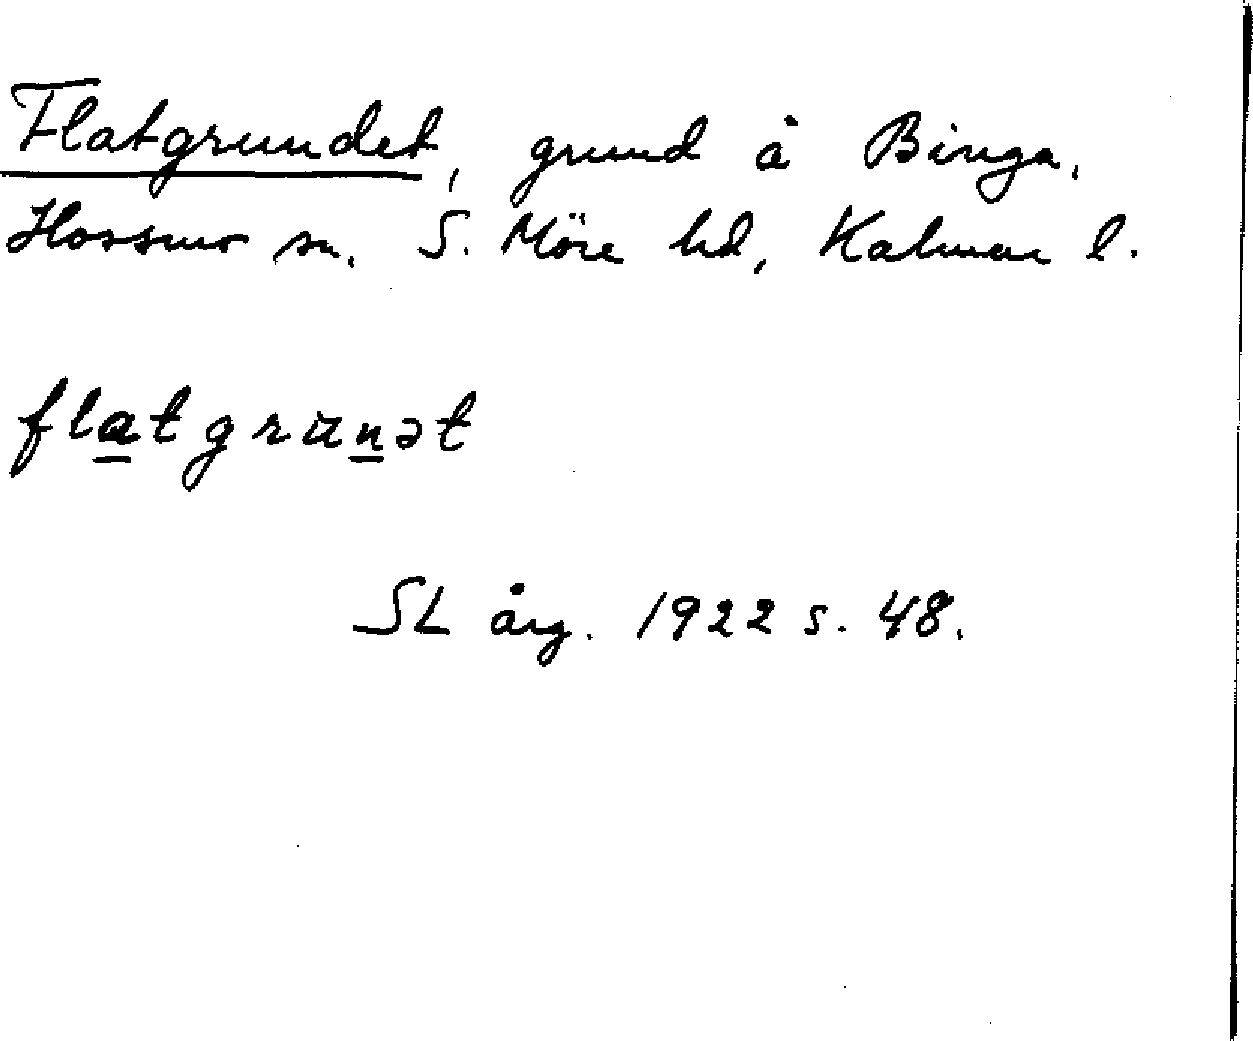 Flatgrundet, grund å Binga,
Hossmo sn, S. Möre hd, Kalmar l.
flatgrunət
SL årg. 1922 s. 48.